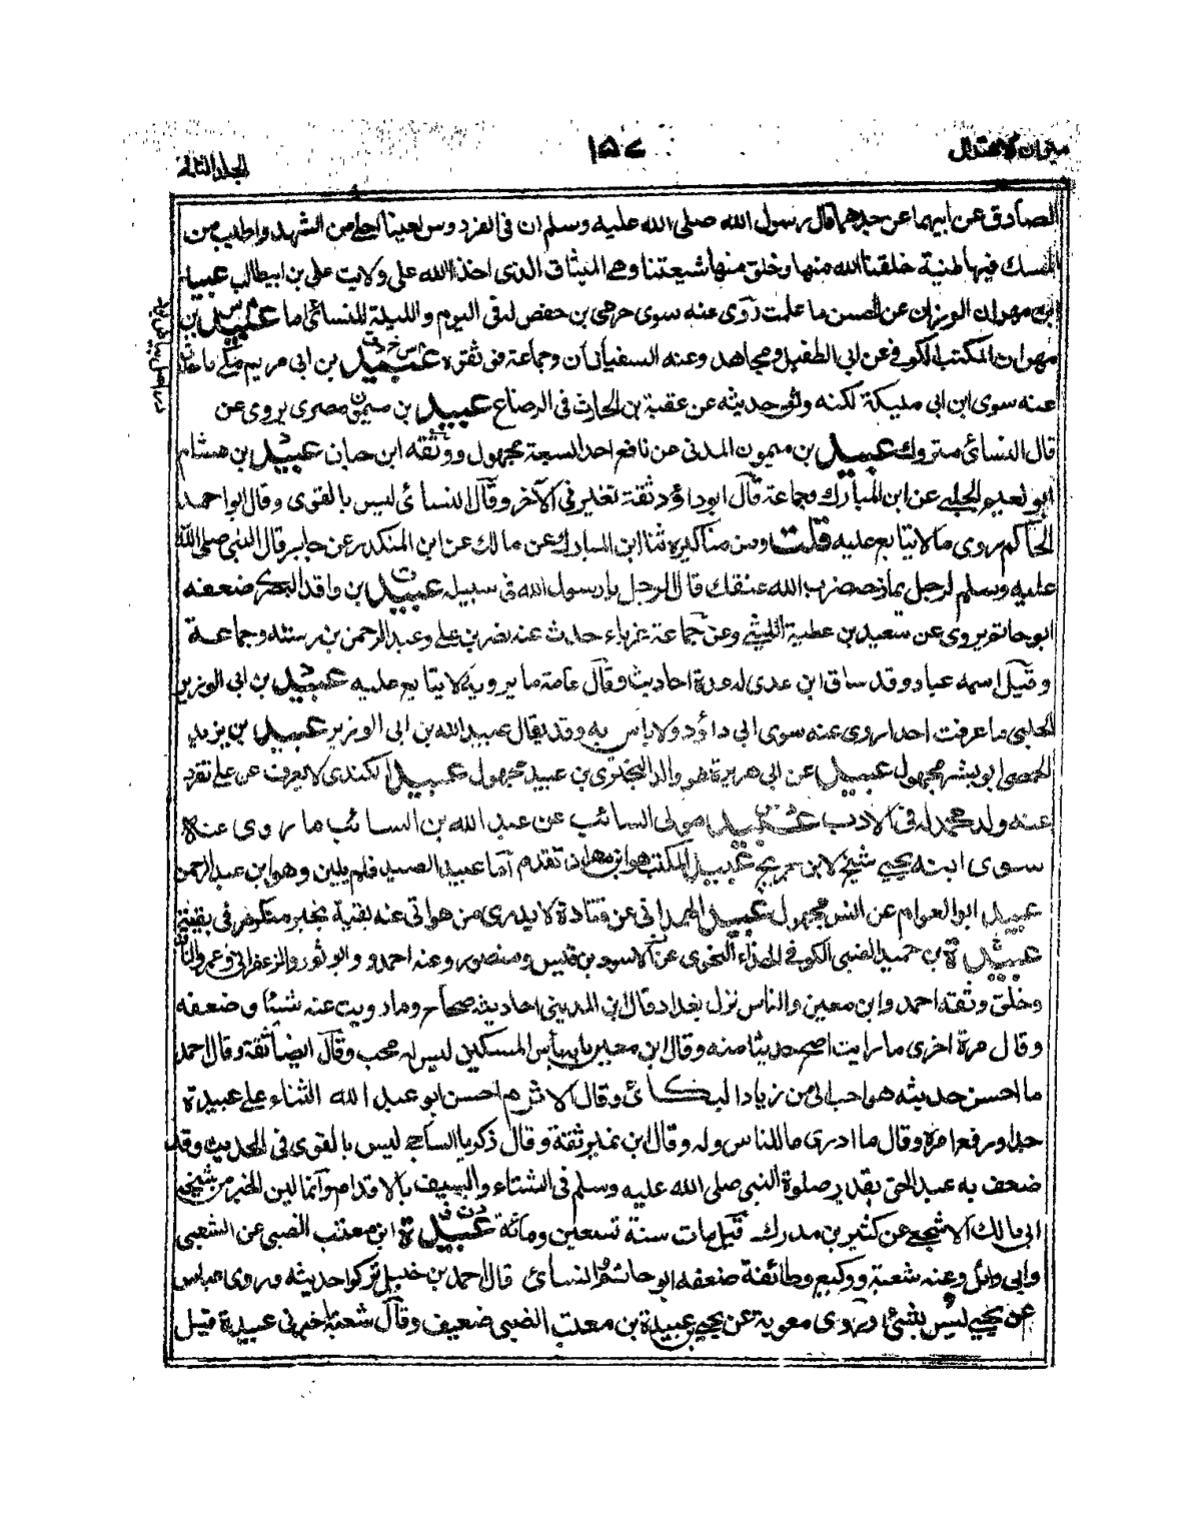 ميزان الاعتدال
١٥٧
الجلد الثانى
الصادق عن ابيهما عن جدهما قال رسول الله صلى الله عليه وسلم ان فى الفردوس لعينا احلى من الشهد واطيب من
المسك فيها طينة خلقنا الله منها وخلق منها شيعتنا وهى الميثاق الذى اخذ الله على ولايت على بن ابيطالب عبيد
بن مهران الوزان عن الحسن ما علمت روى عنه سوى حرمى بن حفص له فى اليوم والليلة للنسائى اما عبيد بن
مهران المكتب الكوفى عن ابى الطفيل ومجاهد وعنه السفيانان وجماعة فوثقوه عبيد بن ابى مريم مكى ما
عنه سوى ابن ابى مليكة لكنه وثق حديثه عن عقبة بن الحارث فى الرضاع عبيد بن ميمون مصرى يروى عن
قال النسائى متروك عبيد بن ميمون المدنى عن نافع احد السبعة مجهول ووثقه ابن حبان عبيد بن هشام
ابو نعيم الحلبى عن ابن المبارك وجماعة قال ابوداؤد ثقة تغير فى الآخر وقال النسائى ليس بالقوى وقال ابو احمد
الحاكم روى ما لا يتابع عليه قلت ومن مناكيره ثنا ابن المبارك عن مالك عن ابن المنكدر عن جابر قال النبى صلى الله
عليه وسلم لرجل يمازحه ضرب الله عنقك قال الرجل يا رسول الله فى سبيله عبيد بن واقد البصرى ضعفه
ابو حاتم يروى عن سعيد بن عطية الليثى وعن جماعة غرباء حدث عنه نصر بن على وعبد الرحمن بن رسته وجماعة
وقيل اسمه عباد وقد ساق ابن عدى له عدة احاديث وقال عامة ما يرويه لا يتابع عليه عبيد بن ابى الوزير
الحلبى ما عرفت احدا روى عنه سوى ابى داؤد ولا بأس به وقد يقال عبيد الله بن ابى الوزير عبيد بن يزيد
الحمصى ابو بشر مجهول عبيد عن ابى هريرة هو والد البخترى بن عبيد مجهول عبيد الكندى لا يعرف عن على تفرد
عنه ولده محمد له فى الادب عبيد مولى السائب عن عبد الله بن السائب ما روى عنه
سوى ابنه يحيى شيخ لابن جريج عبيد المكتب هو ابن مهران تقدم اما عبيد الصيد فلم يلين وهو ابن عبد الرحمن
عبيد ابو العوام عن انس مجهول عبيد الهمدانى عن قتادة لا يدرى من هو اتى عنه بقية بخبر منكر هو فى بقية
عبيدة بن حميد الضبى الكوفى الحذاء النحوى عن الاسود بن قيس ومنصور وعنه احمد وابو ثور والزعفرانى وعمرو الناقد
وخلق وثقه احمد وابن معين والناس نزل بغداد قال ابن المدينى احاديثه صحاح وما رويت عنه شيئا وضعفه
وقال مرة اخرى ما رايت اصح حديثا منه وقال ابن معين ما به بأس المسكين ليس له بخت وقال ايضا ثقة وقال احمد
ما احسن حديثه هو احب الى من زياد البكائى وقال الاثرم احسن ابو عبد الله الثناء على عبيدة
جدا ورفع امره وقال ما ادرى ما للناس وله وقال ابن نمير ثقة وقال زكريا الساجى ليس بالقوى فى الحديث وقد
ضعف به عبد الحق تقدير صلوة النبى صلى الله عليه وسلم فى الشتاء والصيف بالاقدام وانما لين الخبر من شيخه
ابى مالك الاشجعى عن كثير بن مدرك قيل مات سنة تسعين ومائة عبيدة ابن معتب الضبى عن الشعبى
وابى وائل وعنه شعبة ووكيع وطائفة ضعفه ابو حاتم والنسائى قال احمد بن حنبل تركوا حديثه وروى عباس
عن يحيى ليس بشئ وروى معوية عن يحيى عبيدة بن معتب الضبى ضعيف وقال شعبة اخبرنى عبيدة قبل